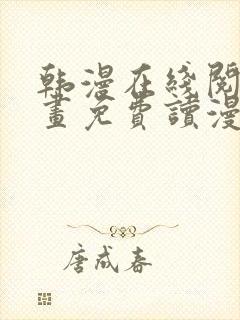 韩漫在线阅
画免費讀漫
唐成春